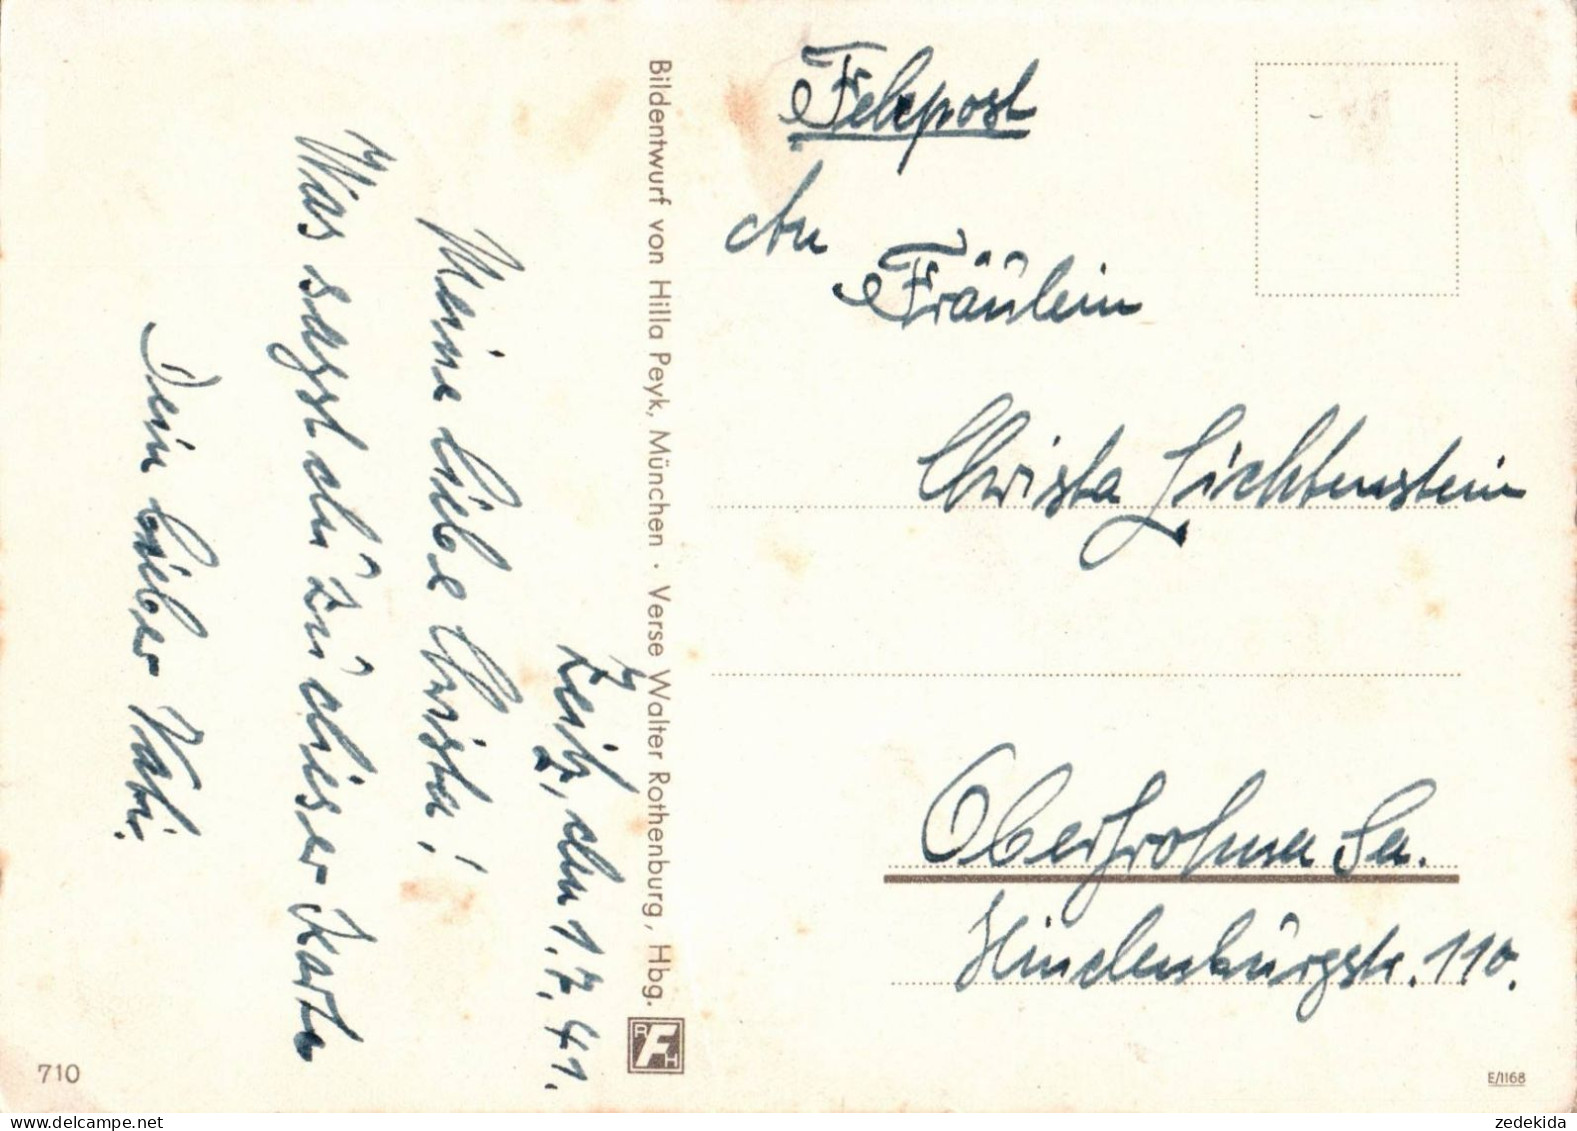 Feldpost
An
Fräulein
Christa Lichtenstein
Oberfrohna Sa.
Hindenburgstr. 110.
Zeitz, den 1.7.41.
Meine liebe Christa!
Was sagst du zu dieser Karte
Dein lieber Vati.
Bildentwurf von Hilla Peyk, München · Verse Walter Rothenburg, Hbg.
RFH
710
E/1168
zedekida